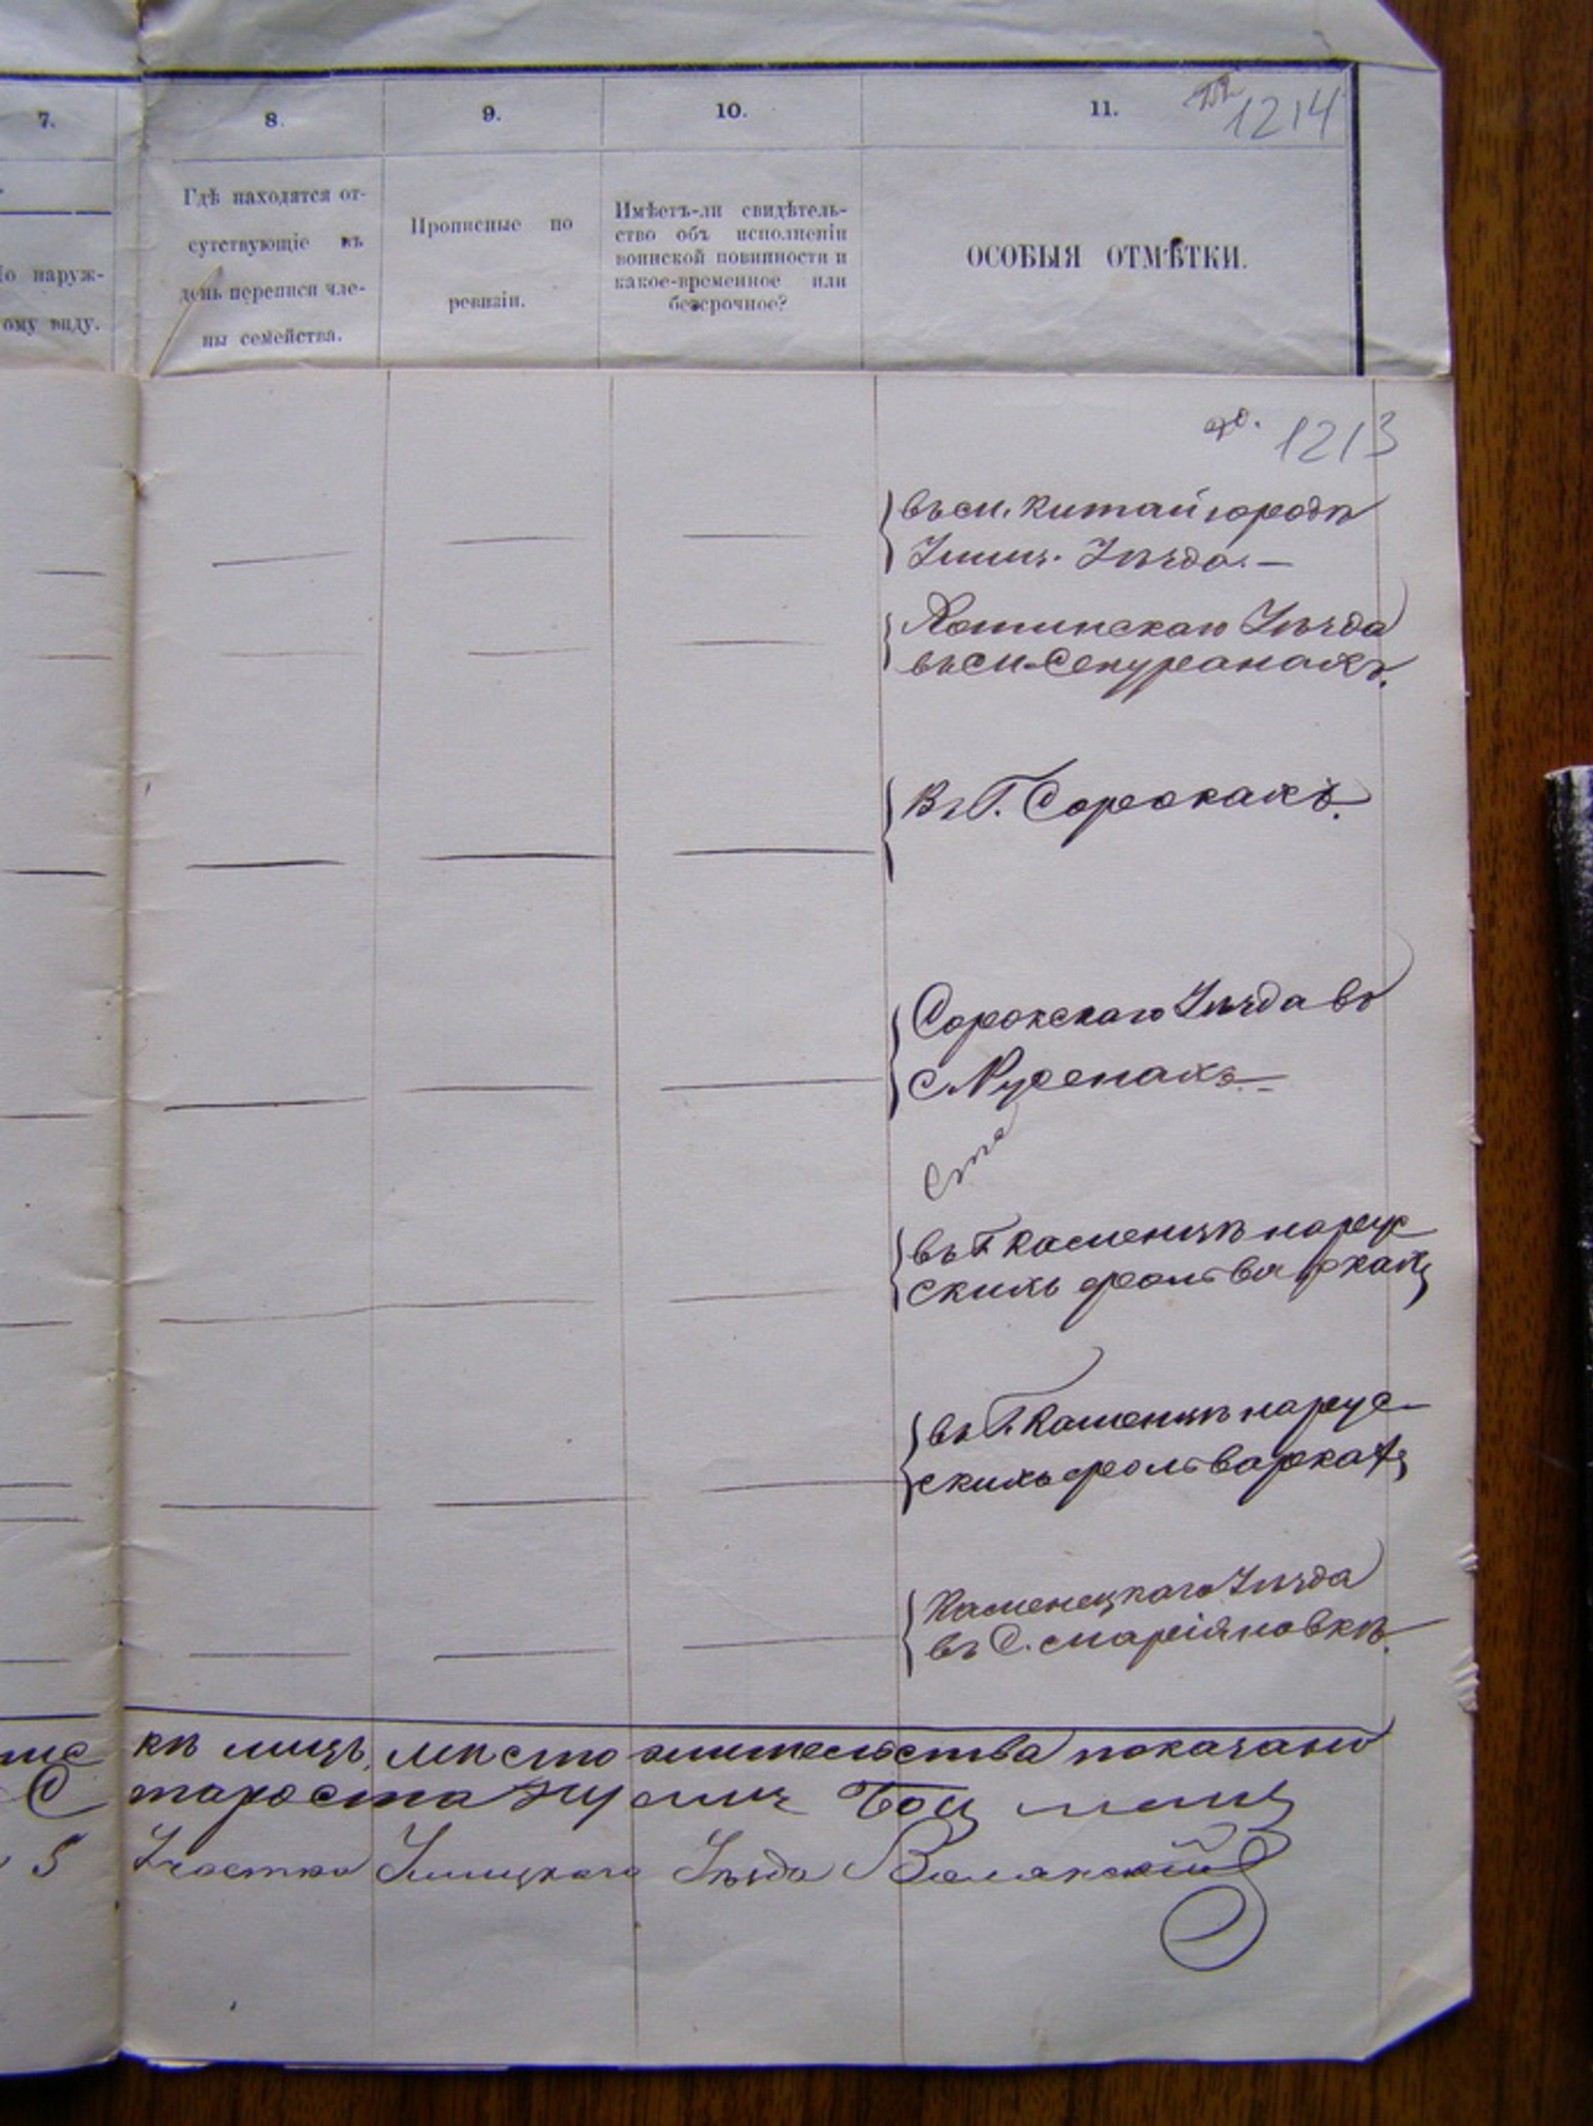 7.
8.
9.
10.
11.
1214
Гдѣ находятся от-
сутствующіе въ
день переписи чле-
ны семейства.
Прописные по
ревизіи.
Имѣетъ-ли свидѣтель-
ство объ исполненіи
воинской повинности и
какое-временное или
безсрочное?
ОСОБЫЯ ОТМѢТКИ.
о наруж-
ому виду.
1213
въ м. Китайгородѣ
Ушиц. Уѣзда. —
Хотинскаго Уѣзда
въ м. Секуранахъ.
Въ Г. Сорокахъ.
Сорокскаго Уѣзда въ
с
въ Г Каменцѣ на рус
скихъ фольваркахъ
въ Г. Каменцѣ на рус-
скихъ фольваркахъ
Каменецкаго Уѣзда
въ С. Маріяновкѣ.
кѣ лицъ, мѣсто жительства показано
С тароста
5 Участка Ушицкаго Уѣзда